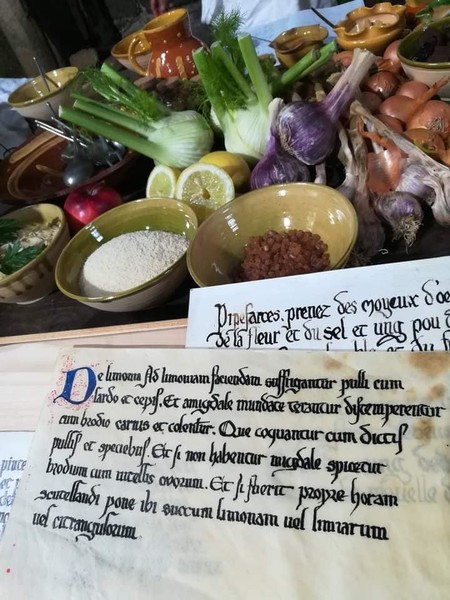 Pipefarces. prenez des moyeux d'oe
de la fleur et du sel et ung pou d
De limonia. Ad limoniam faciendam suffrigantur pulli cum
lardo et cepis. Et amigdale mundate terantur distemperentur
cum brodio carnis et colentur. Que coquantur cum dictis
pullis et speciebus. Et si non habentur amigdale spicetur
brodium cum vitellis ovorum. Et si fuerit prope horam
scutellandi pone ibi succum limonum vel limiarum
vel citrangulorum.